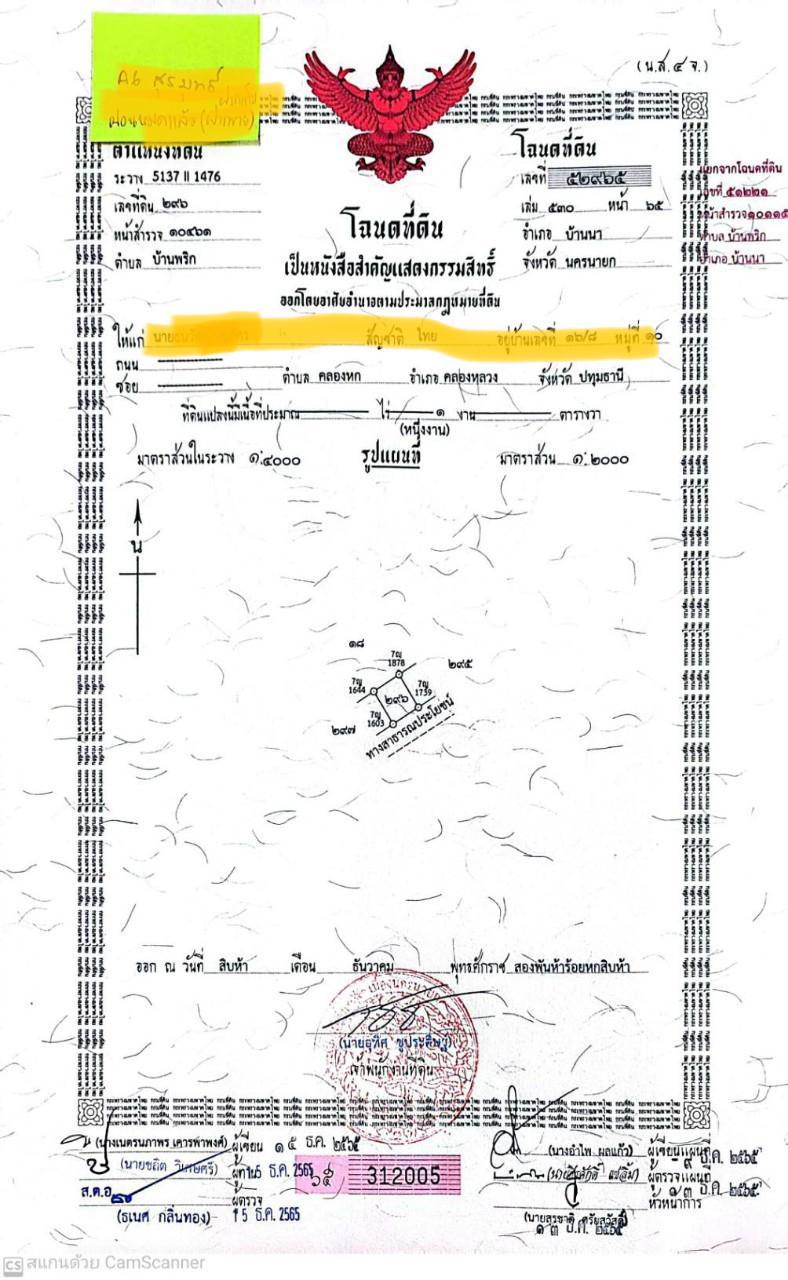 (น.ส.๔ จ.)
A6
ตำแหน่งที่ดิน
ระวาง 5137 II 1476
เลขที่ดิน ๒๙๖
หน้าสำรวจ ๑๐๔๖๑
ตำบล บ้านพริก
โฉนดที่ดิน
เลขที่ ๕๒๙๖๕
เล่ม ๕๓๐ หน้า ๖๕
อำเภอ บ้านนา
จังหวัด นครนายก
แยกจากโฉนดที่ดิน
เลขที่ ๕๑๒๒๑
หน้าสำรวจ๑๐๑๑๕
ตำบล บ้านพริก
อำเภอ บ้านนา
โฉนดที่ดิน
เป็นหนังสือสำคัญแสดงกรรมสิทธิ์
ออกโดยอาศัยอำนาจตามประมวลกฎหมายที่ดิน
ให้แก่ สัญชาติ ไทย อยู่บ้านเลขที่ ๑๖/๘ หมู่ที่ ๑๐
ถนน
ซอย ตำบล คลองหก อำเภอ คลองหลวง จังหวัด ปทุมธานี
ที่ดินแปลงนี้มีเนื้อที่ประมาณ ไร่ ๑ งาน ตารางวา
(หนึ่งงาน)
มาตราส่วนในระวาง ๑:๔๐๐๐ รูปแผนที่ มาตราส่วน ๑:๒๐๐๐
น
๑๘
7ญ
1878
๒๙๕
7ญ
1644
7ญ
1739
๒๙๖
7ญ
1603
๒๙๗
ทางสาธารณประโยชน์
ออก ณ วันที่ สิบห้า เดือน ธันวาคม พุทธศักราช สองพันห้าร้อยหกสิบห้า
เจ้าพนักงานที่ดิน
ผู้เขียน ๑๕ ธ.ค. ๒๕๖๕
(นางอำไพ ผลแก้ว) ผู้เขียนแผนที่
๙ ธ.ค. ๒๕๖๕
ผู้ทาน
5 ธ.ค. 2565
312005
ผู้ตรวจแผนที่
๑๓ ธ.ค. ๒๕๖๕
ส.ต.อ.
ผู้ตรวจ
หัวหน้าการ
(ธเนศ กลิ่นทอง) 15 ธ.ค. 2565
๑๓ ธ.ค. ๒๕๖๕
CS สแกนด้วย CamScanner